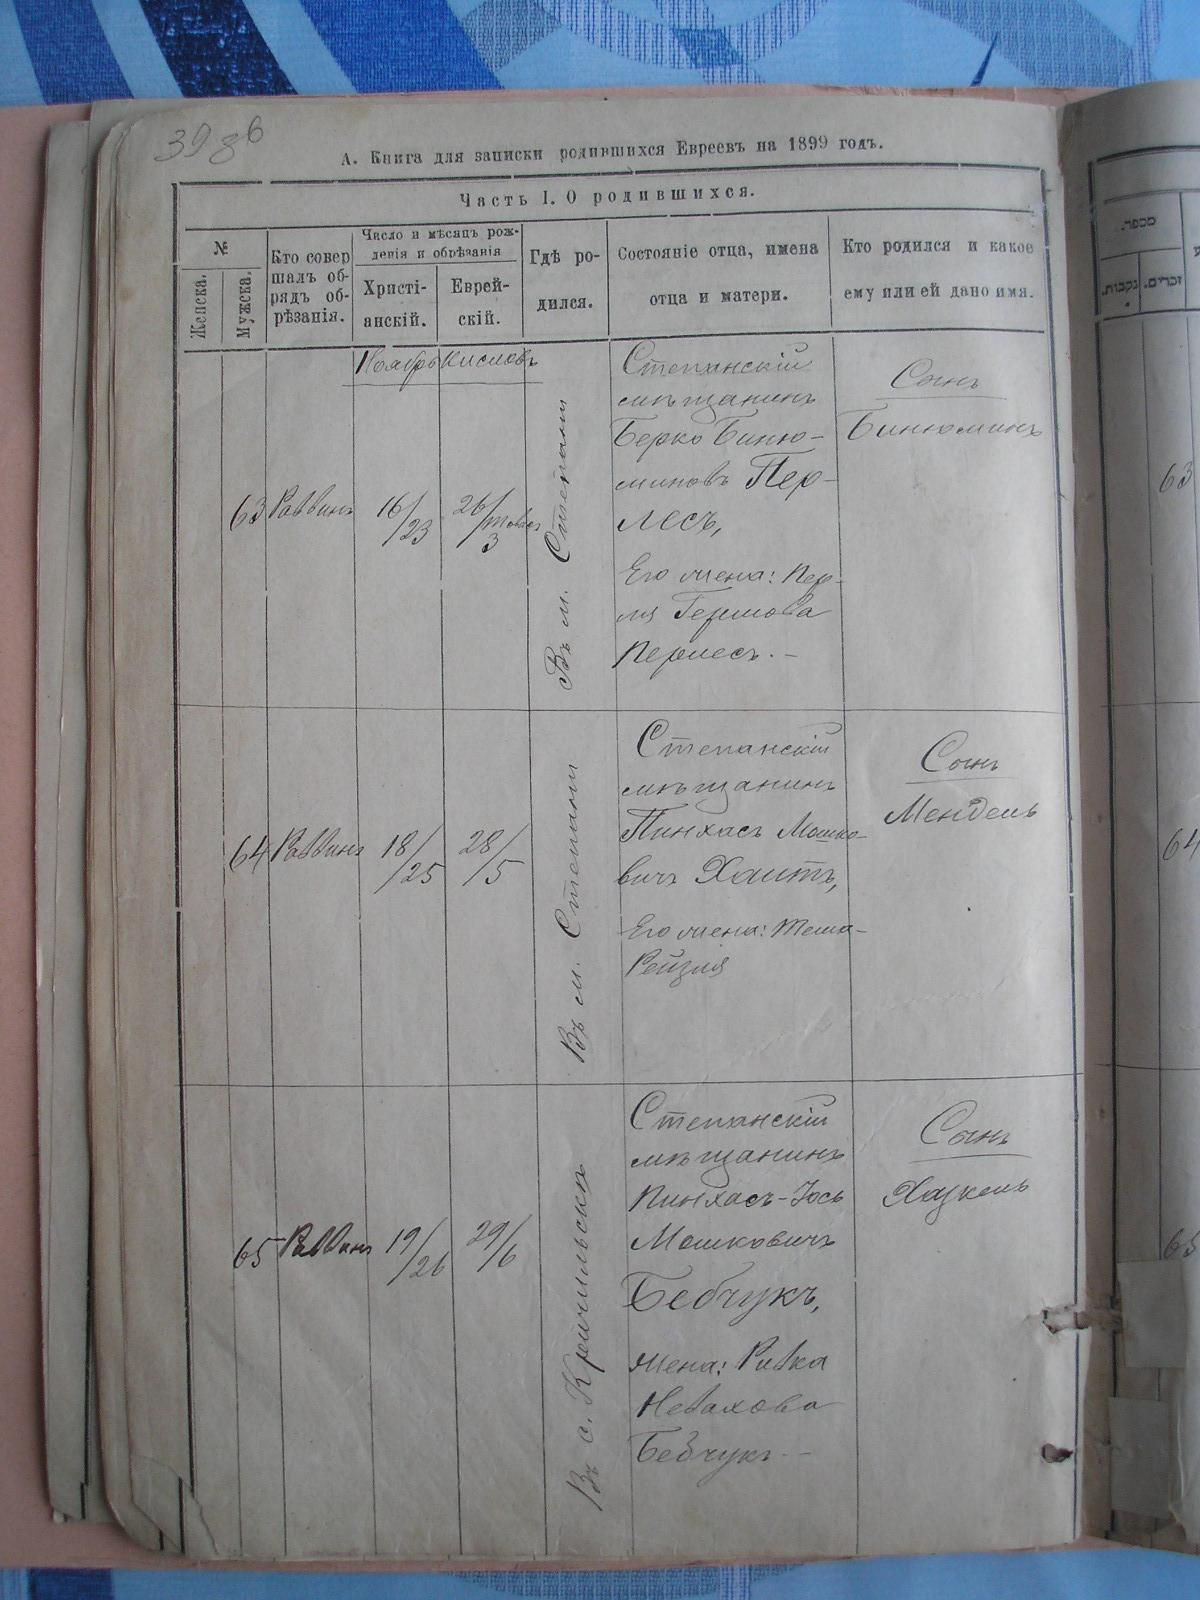 39
А. Книга для записки родившихся Евреевъ на 1899 годъ.
Часть I. О родившихся.
№
Женска.
Мужска.
Кто совер
шалъ об-
рядъ об-
рѣзанія.
Число и мѣсяцъ рож-
денія и обрѣзанія
Христі-
анскій.
Еврей-
скій.
Гдѣ ро-
дился.
Состояніе отца, имена
отца и матери.
Кто родился и какое
ему или ей дано имя.
Ноябрь Кислевъ
63 Раввинъ
16/23
26/тевес 3
Въ м. Степани
Степанскій
мѣщанинъ
Берко Биню-
миновъ Пер-
лесъ,
Его жена: Пер-
ля Гершова
Перлесъ. –
Сынъ
Бинюминъ
64 Раввинъ
18/25
28/5
Въ м. Степани
Степанскій
мѣщанинъ
Пинхасъ Мошко-
вичъ Хаитъ,
Его жена:
Рейзля
Сынъ
Мендель
65 Раввинъ
19/26
29/6
Въ с.
Степанскій
мѣщанинъ
Пинхасъ-Іось
Мошковичъ
Бебчукъ,
жена: Ривка
Невахова
Бебчукъ –
Сынъ
Хацкель
מספר.
נקבות.
זכרים.
63
64
65